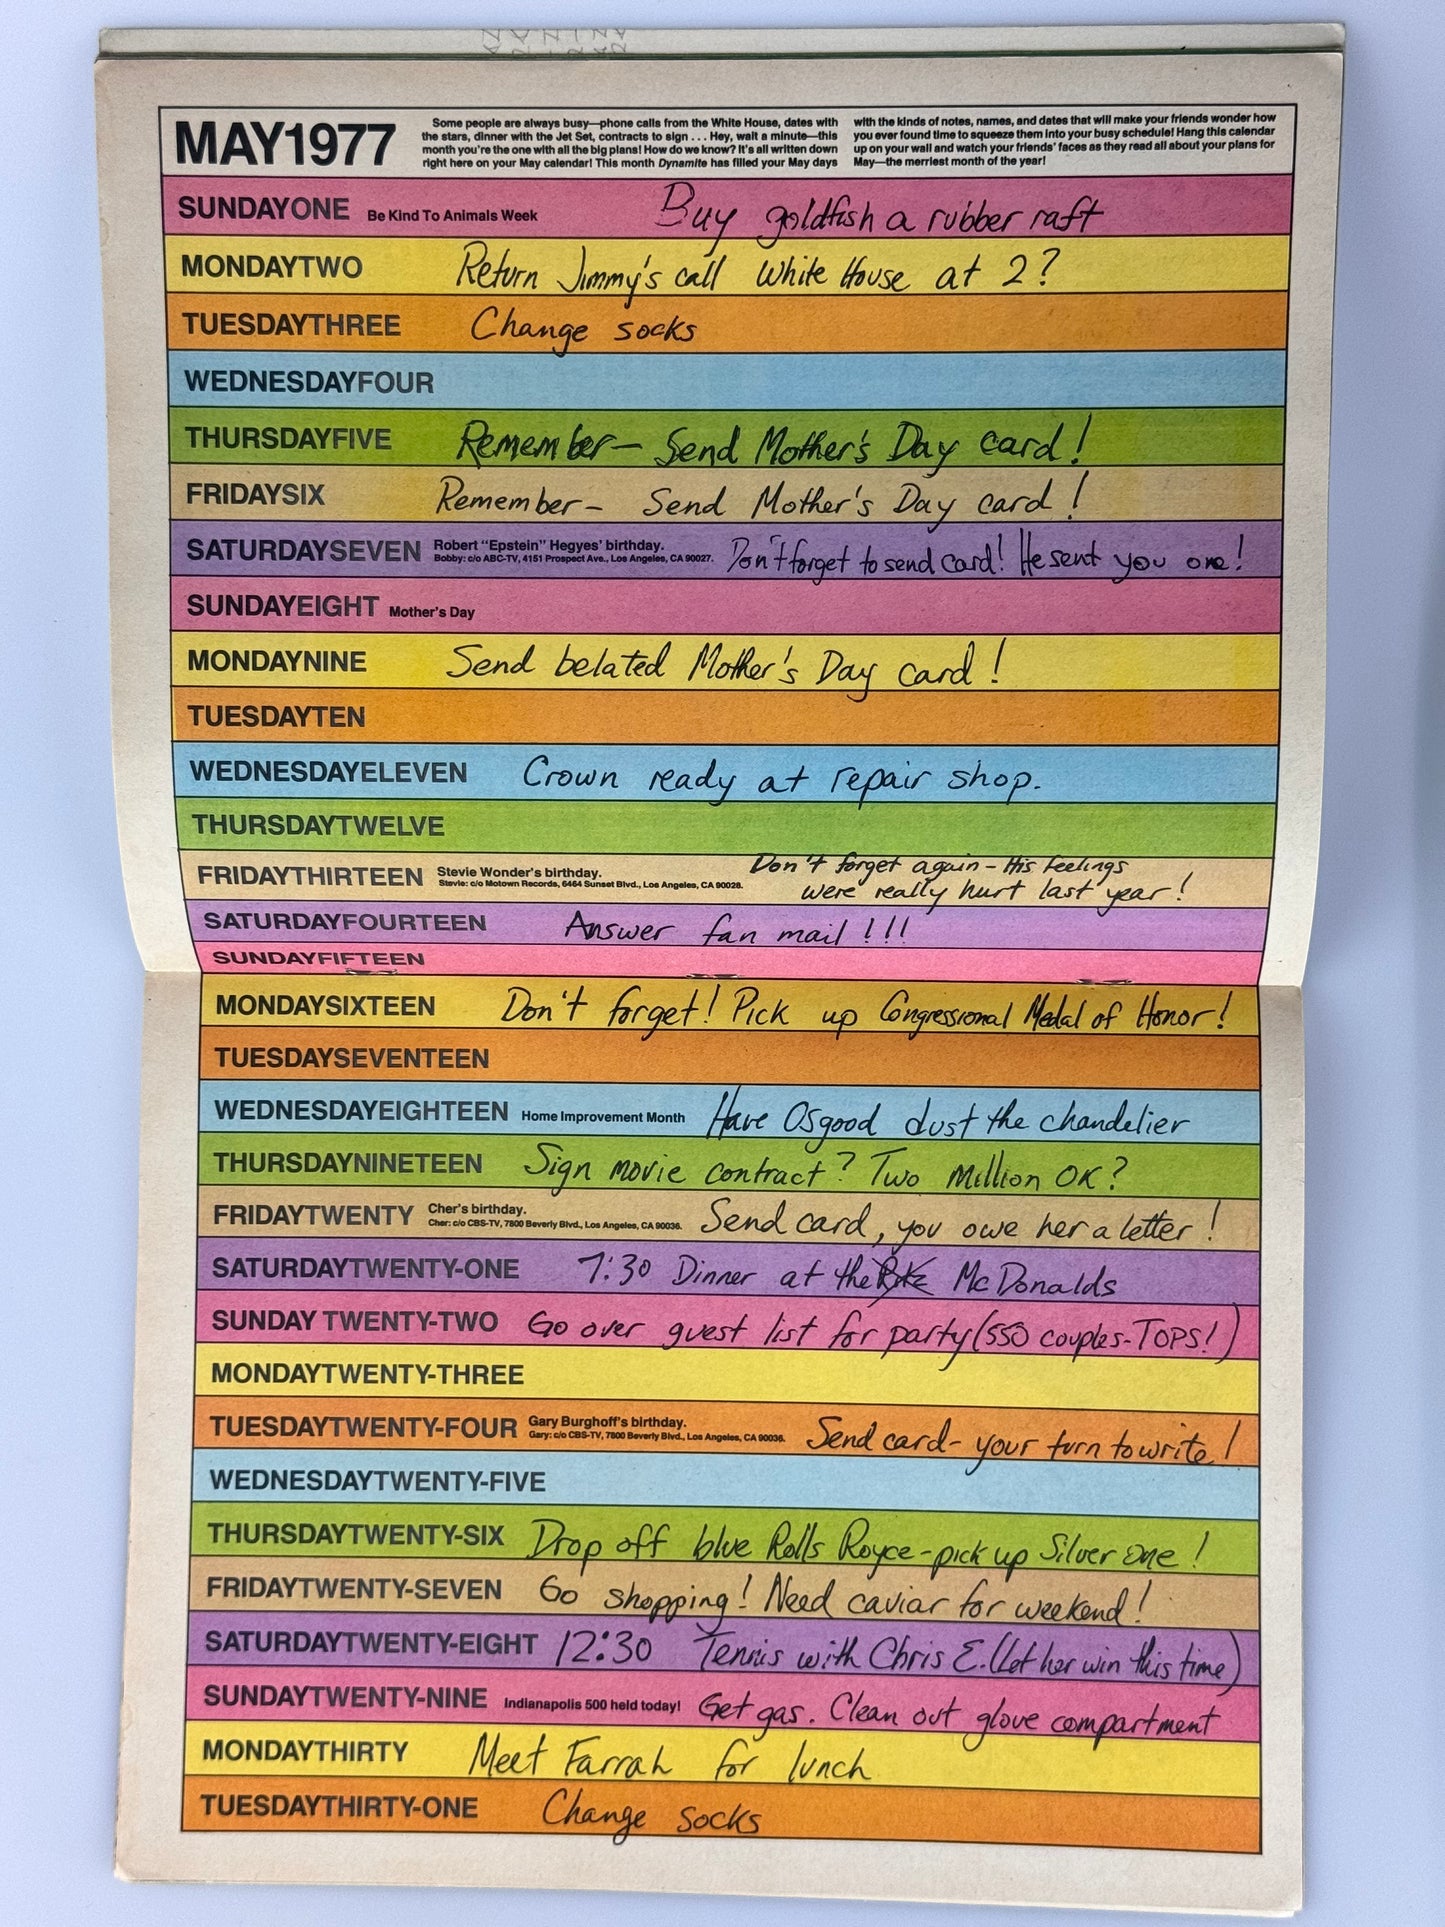 MAY1977
Some people are always busy—phone calls from the White House, dates with
the stars, dinner with the Jet Set, contracts to sign . . . Hey, wait a minute—this
month you're the one with all the big plans! How do we know? It's all written down
right here on your May calendar! This month Dynamite has filled your May days
with the kinds of notes, names, and dates that will make your friends wonder how
you ever found time to squeeze them into your busy schedule! Hang this calendar
up on your wall and watch your friends' faces as they read all about your plans for
May—the merriest month of the year!
SUNDAYONE Be Kind To Animals Week Buy goldfish a rubber raft
MONDAYTWO Return Jimmy's call White House at 2?
TUESDAYTHREE Change socks
WEDNESDAYFOUR
THURSDAYFIVE Remember— Send Mother's Day card!
FRIDAYSIX Remember— Send Mother's Day card!
SATURDAYSEVEN Robert "Epstein" Hegyes' birthday.
Bobby: c/o ABC-TV, 4151 Prospect Ave., Los Angeles, CA 90027. Don't forget to send card! He sent you one!
SUNDAYEIGHT Mother's Day
MONDAYNINE Send belated Mother's Day card!
TUESDAYTEN
WEDNESDAYELEVEN Crown ready at repair shop.
THURSDAYTWELVE
FRIDAYTHIRTEEN Stevie Wonder's birthday. Don't forget again – His feelings
Stevie: c/o Motown Records, 6464 Sunset Blvd., Los Angeles, CA 90028. were really hurt last year!
SATURDAYFOURTEEN Answer fan mail!!!
SUNDAYFIFTEEN
MONDAYSIXTEEN Don't forget! Pick up Congressional Medal of Honor!
TUESDAYSEVENTEEN
WEDNESDAYEIGHTEEN Home Improvement Month Have Osgood dust the chandelier
THURSDAYNINETEEN Sign movie contract? Two Million OK?
FRIDAYTWENTY Cher's birthday.
Cher: c/o CBS-TV, 7800 Beverly Blvd., Los Angeles, CA 90036. Send card, you owe her a letter!
SATURDAYTWENTY-ONE 7:30 Dinner at the Ritz McDonalds
SUNDAY TWENTY-TWO Go over guest list for party (550 couples-TOPS!)
MONDAYTWENTY-THREE
TUESDAYTWENTY-FOUR Gary Burghoff's birthday.
Gary: c/o CBS-TV, 7800 Beverly Blvd., Los Angeles, CA 90036. Send card- your turn to write!
WEDNESDAYTWENTY-FIVE
THURSDAYTWENTY-SIX Drop off blue Rolls Royce-pick up Silver one!
FRIDAYTWENTY-SEVEN Go shopping! Need caviar for weekend!
SATURDAYTWENTY-EIGHT 12:30 Tennis with Chris E. (Let her win this time)
SUNDAYTWENTY-NINE Indianapolis 500 held today! Get gas. Clean out glove compartment
MONDAYTHIRTY Meet Farrah for lunch
TUESDAYTHIRTY-ONE Change socks